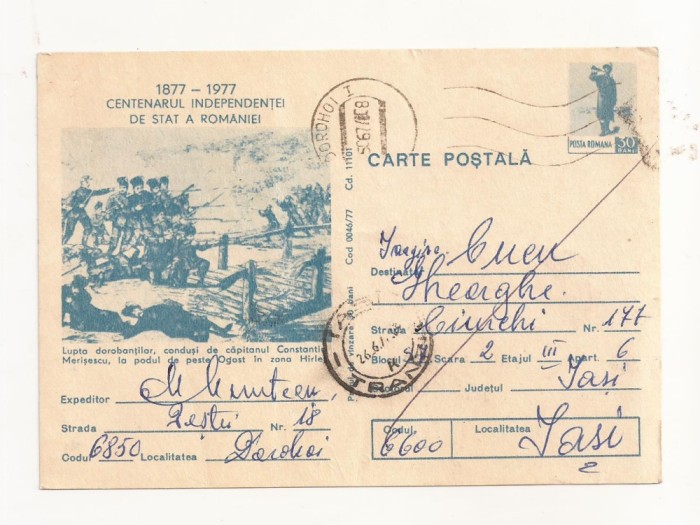 1877 – 1977
CENTENARUL INDEPENDENȚEI
DE STAT A ROMÂNIEI
DOROHOI 1
POSTA ROMANA 30 BANI
CARTE POȘTALĂ
Cod 0046/77 Cd. 11101
Destinatar Cucu
Gheorghe
Strada Ciurchi Nr. 177
Blocul Scara 2 Etajul III Apart. 6
Sectorul Județul Iași
Codul Localitatea
6600 Iași
Lupta dorobanților, conduși de căpitanul Constantin
Merișescu, la podul de peste Ogost în zona Hîrleț
Expeditor
Strada Nr. 18
Codul 6850 Localitatea Dorohoi